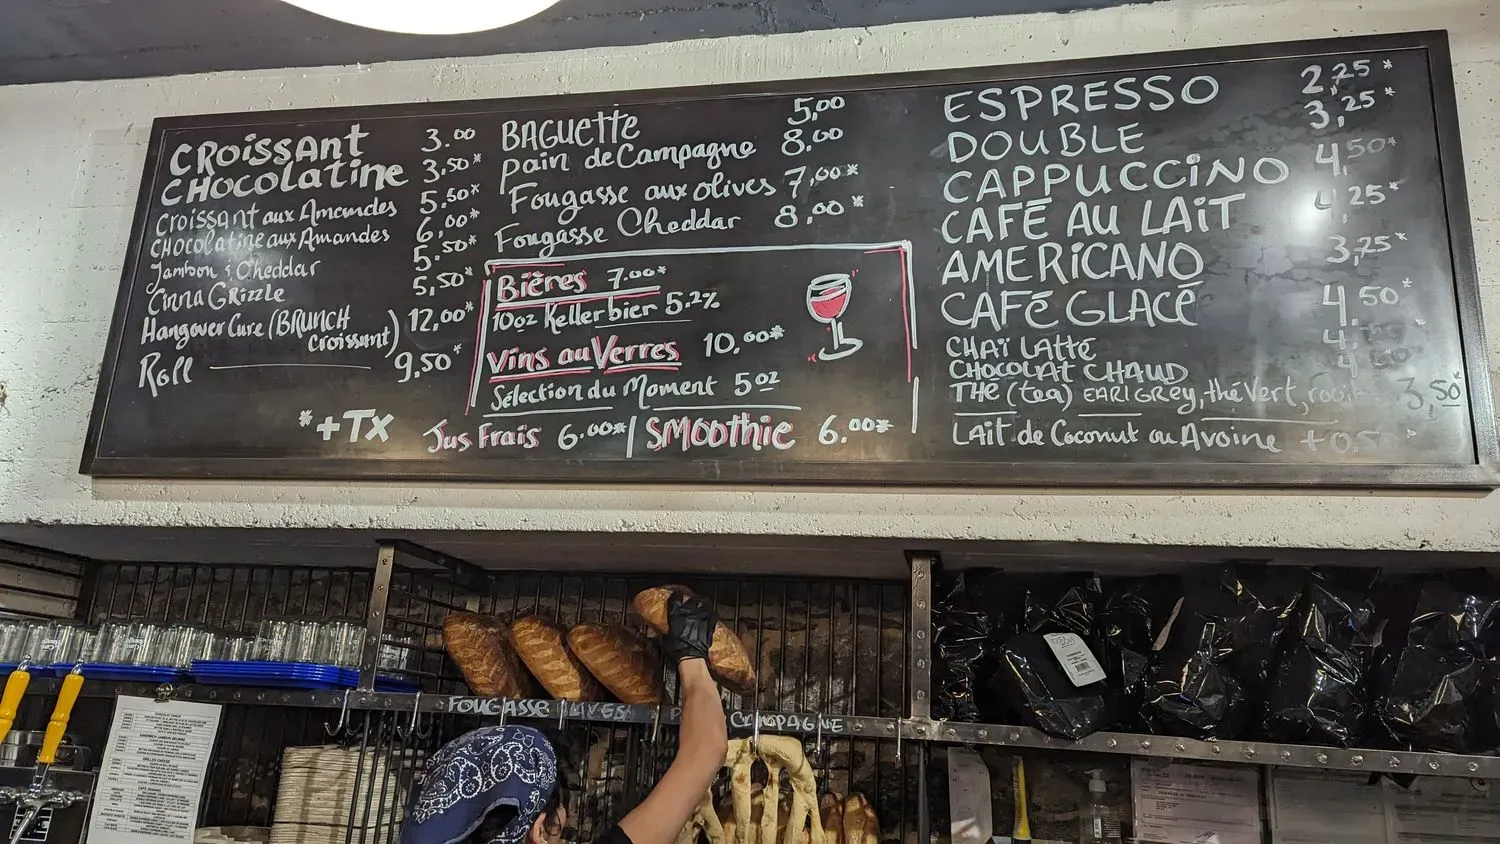 CROISSANT 3.00
CHOCOLATINE 3,50*
CROISSANT aux Amandes 5.50*
CHOCOLATINE aux Amandes 6,00*
Jambon & Cheddar 5.50*
Cinna GRizzle 5,50*
Hangover Cure (BRUNCH croissant) 12,00*
Roll 9,50*
*+Tx
BAGUETTE 5,00
pain de Campagne 8.00
Fougasse aux olives 7,00*
Fougasse Cheddar 8,00*
Bières 7.00*
10oz Kellerbier 5.2%
Vins au Verres 10,00*
Sélection du Moment 5 oz
Jus Frais 6.00* | SMOOTHIE 6.00*
ESPRESSO 2,25*
DOUBLE 3,25*
CAPPUCCINO 4,50*
CAFÉ AU LAIT 4,25*
AMERICANO 3,75*
CAFÉ GLACÉ 4,50*
CHAÏ LATTE
CHOCOLAT CHAUD
THÉ (tea) EARL GREY, thé Vert, 3,50*
LAIT de Coconut ou Avoine +0,50*
FOUGASSE OLIVES
CAMPAGNE